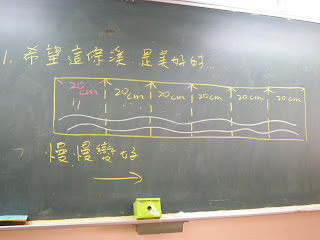 1. 希望這條溪 是美好的...
20cm 20cm 20cm 20cm 20cm 20cm
慢慢變好